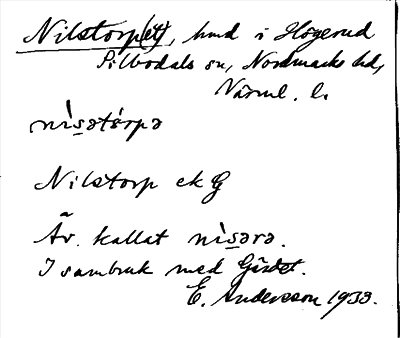 Nilstorp(et), hmd i Högerud
Silbodals sn, Nordmarks hd,
Värml. l.
nìsətårpə
Nilstorp ek G
Äv. kallat nìsərə.
I sambruk med Gärdet.
E. Andersson 1933.